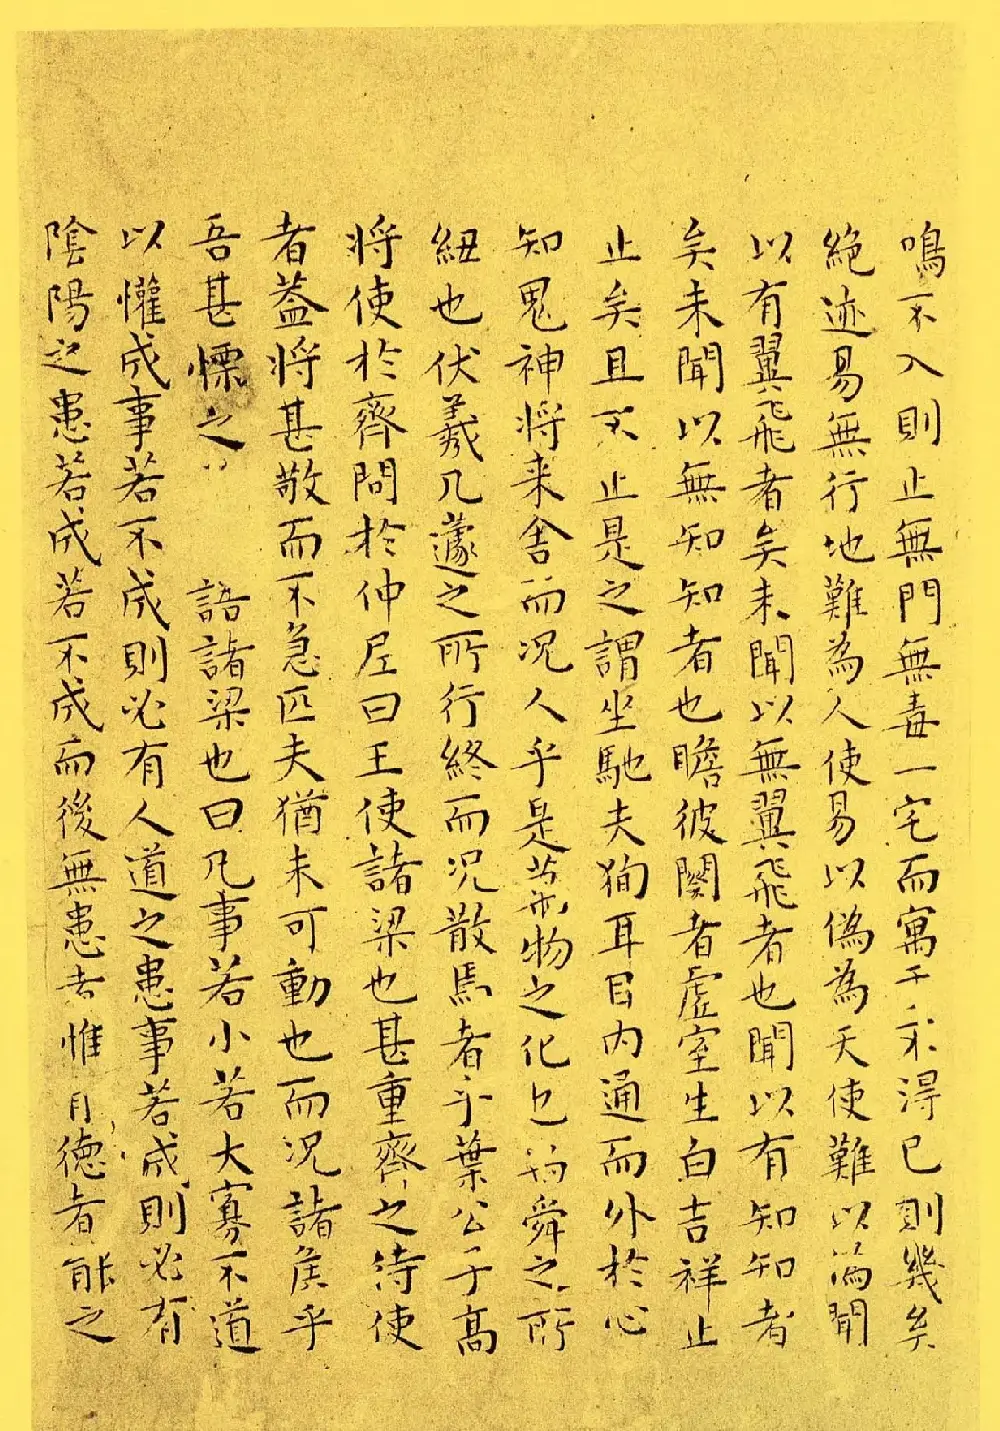 鳴不入則止無門無毒一宅而寓于不得已則幾矣
絕迹易無行地難為人使易以偽為天使難以偽聞
以有翼飛者矣未聞以無翼飛者也聞以有知知者
矣未聞以無知知者也瞻彼闋者虛室生白吉祥止
止矣且不止是之謂坐馳夫徇耳目內通而外於心
知鬼神將来舍而况人乎是萬物之化也禹舜之所
紐也伏羲几蘧之所行終而况散焉者乎葉公子高
將使於齊問於仲尼曰王使諸梁也甚重齊之待使
者葢將甚敬而不急匹夫猶未可動也而况諸侯乎
吾甚慄之 語諸梁也曰凡事若小若大寡不道
以懽成事若不成則必有人道之患事若成則必有
陰陽之患若成若不成而後無患者惟有德者能之